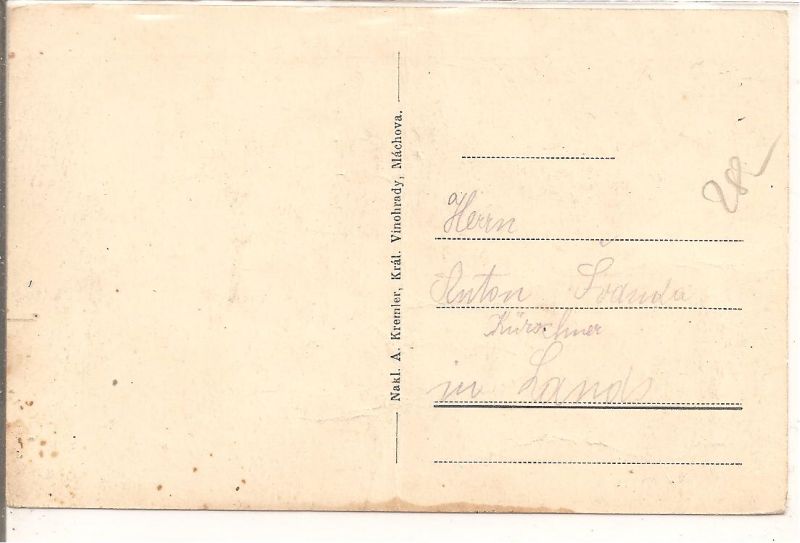 Nakl. A. Kremler, Král. Vinohrady, Máchova.
28
Herrn
Anton Švanda
Kürschner
in